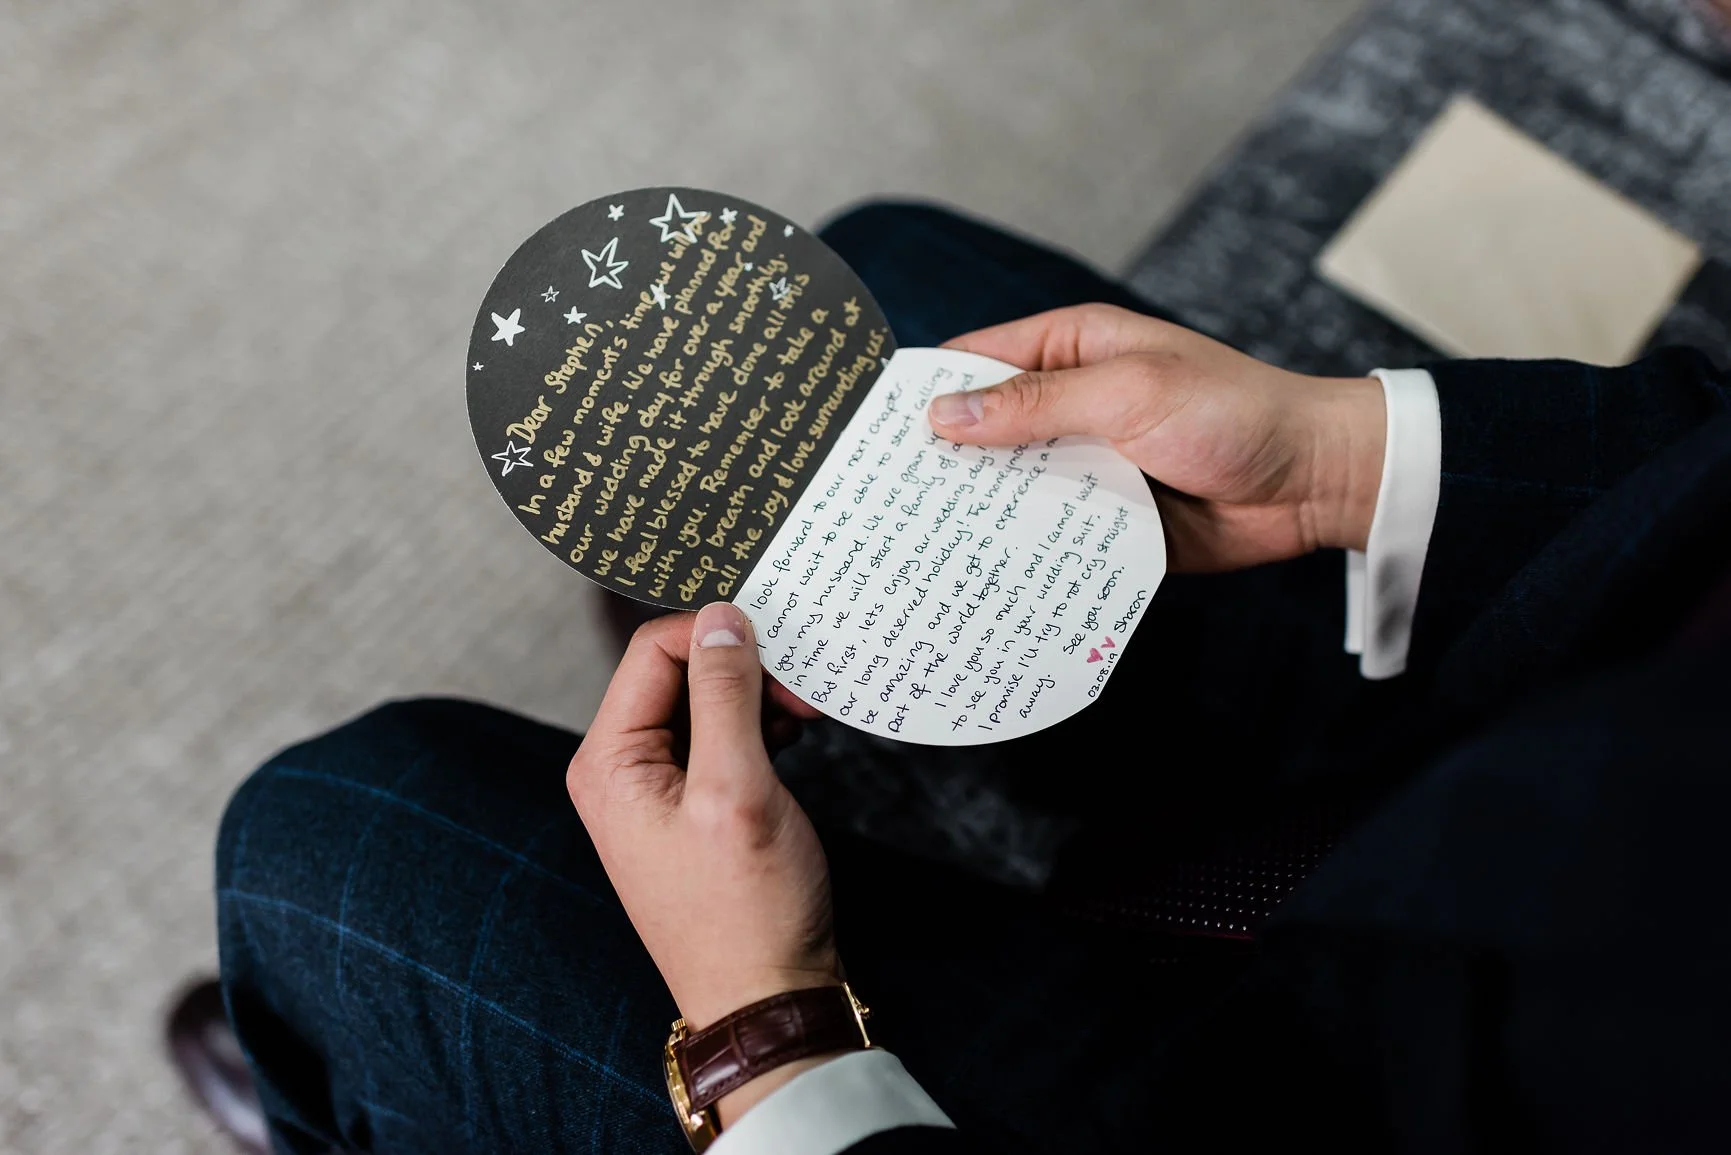 Dear Stephen,
In a few moment's time, we will be
husband & wife. We have planned for
our wedding day for over a year and
we have made it through smoothly.
I feel blessed to have done all this
with you. Remember to take a
deep breath and look around at
all the joy & love surrounding us.
I look forward to our next chapter.
I cannot wait to be able to start calling
you my husband. We are grown up and
in time we will start a family of
But first, lets enjoy our wedding day!
our long deserved holiday! The honeymoon
be amazing and we get to experience a
part of the world together.
I love you so much and I cannot wait
to see you in your wedding suit.
I promise I'll try to not cry straight
away.
See you soon.
Sharon
02.08.19